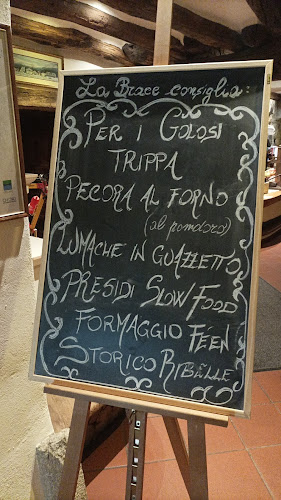 La Brace consiglia:
PER I GOLOSI
TRIPPA
PECORA AL FORNO
(al pomdoro)
LUMACHE IN GUAZZETTO
PRESIDI SLOW FOOD
FORMAGGIO FÉEN
STORICO RIBÈLLE